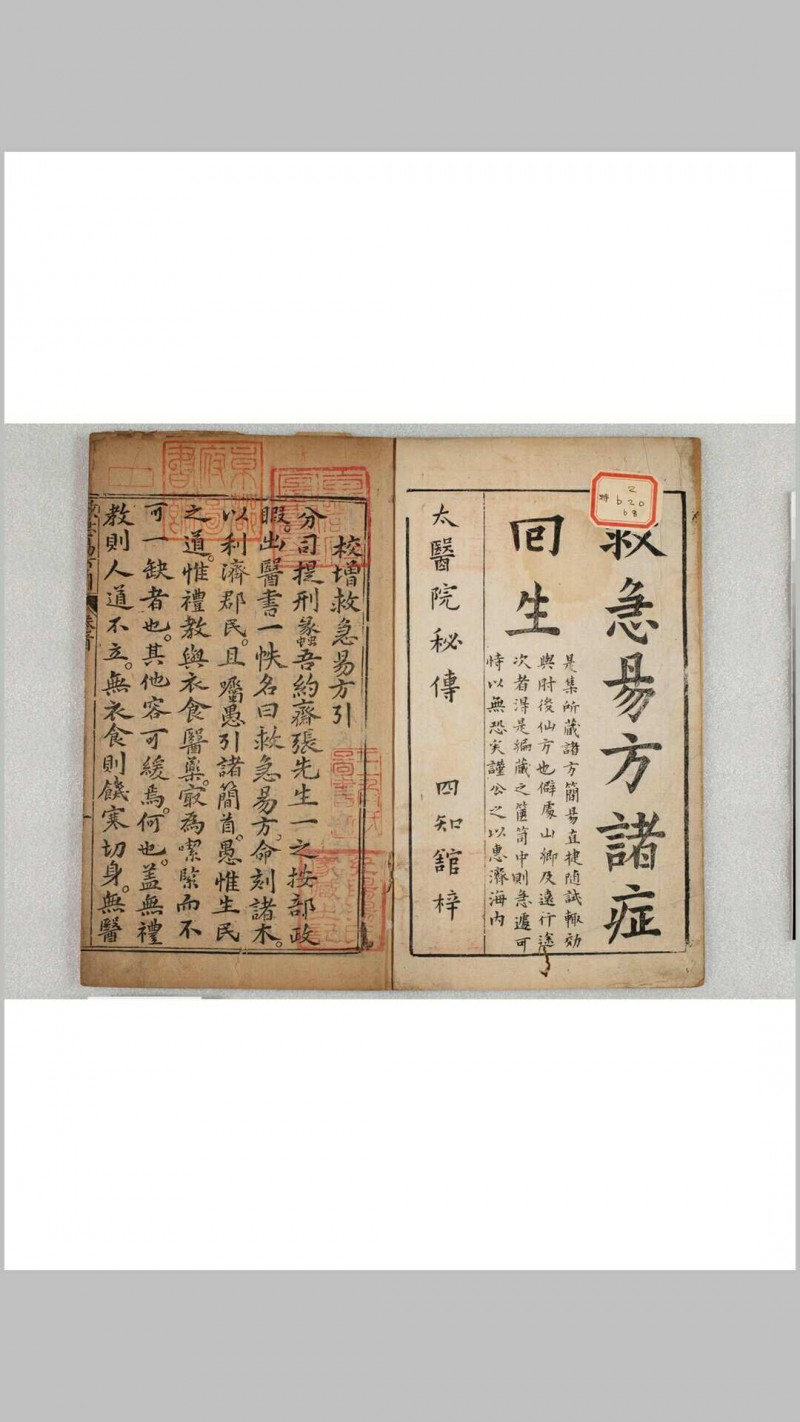 救急易方諸症
回生
是集所藏諸方簡易直捷隨試輒効
與肘後仙方也僻處山鄉及遠行途
次者得是編藏之篋笥中則急遽可
恃以無恐矣謹公之以惠濟海内
太醫院秘傳 四知舘梓
Z
特 b20
b8
校增救急易方引
分司提刑蠡吾約齋張先生一之按部政
暇。出醫書一帙名曰救急易方。命刻諸木。
以利濟郡民。且囑愚引諸簡首。愚惟生民
之道。惟禮教與衣食醫藥。寂為潔緊而不
可一缺者也。其他容可緩焉。何也。蓋無禮
教則人道不立。無衣食則饑寒切身。無醫